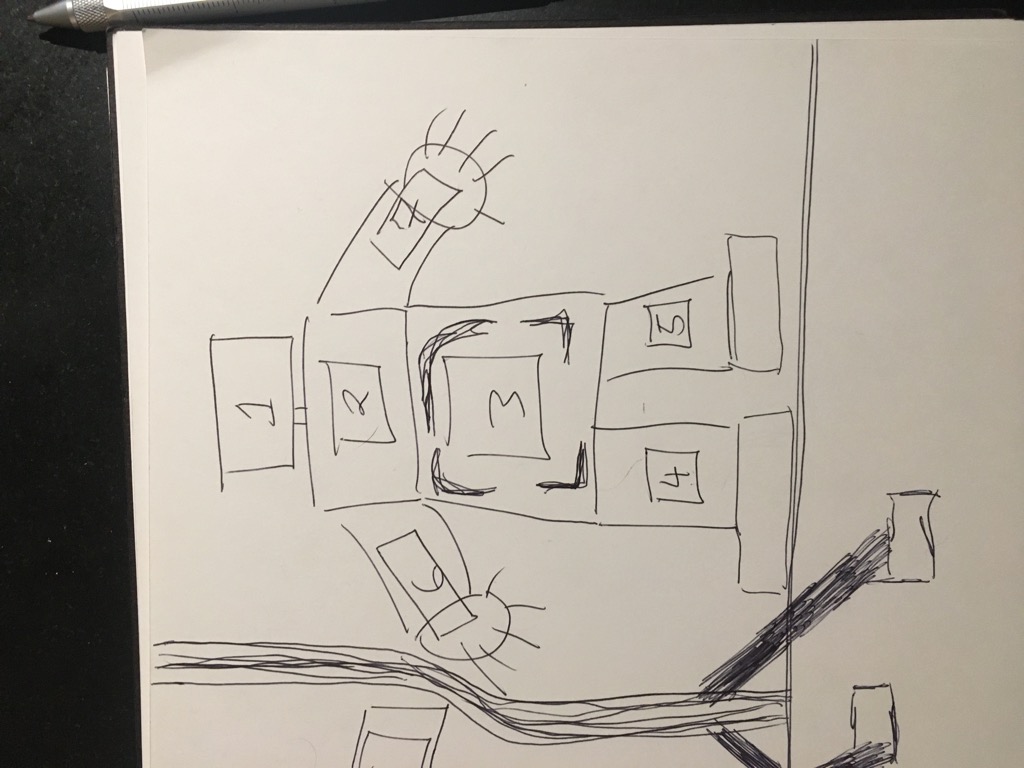 1
2
6
7
3
4
5